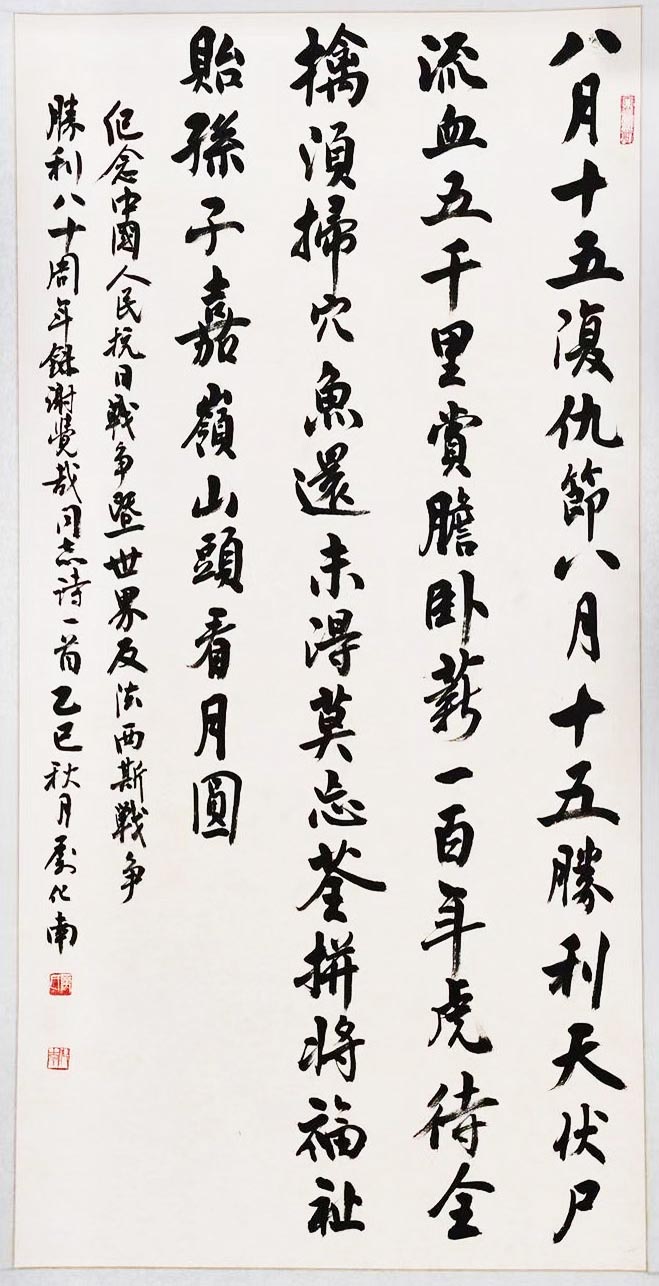 八月十五復仇節八月十五勝利天伏尸
流血五千里賞膽卧薪一百年虎待全
擒須掃穴魚還未得莫忘荃拼將福祉
貽孫子嘉嶺山頭看月圓
纪念中國人民抗日戰争暨世界反法西斯戰争
勝利八十周年録謝覺哉同志诗一首乙巳秋月劉化南